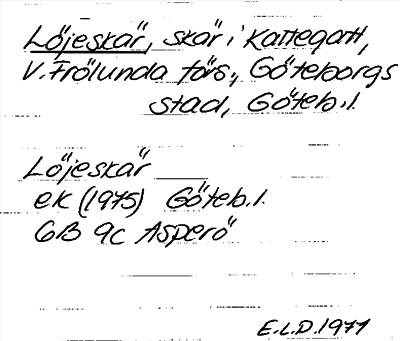 Löjeskär, skär i Kattegatt,
V. Frölunda förs., Göteborgs
stad, Göteb.l.
Löjeskär
ek (1975) Göteb.l.
6B 9c Asperö
E.L.D. 1977